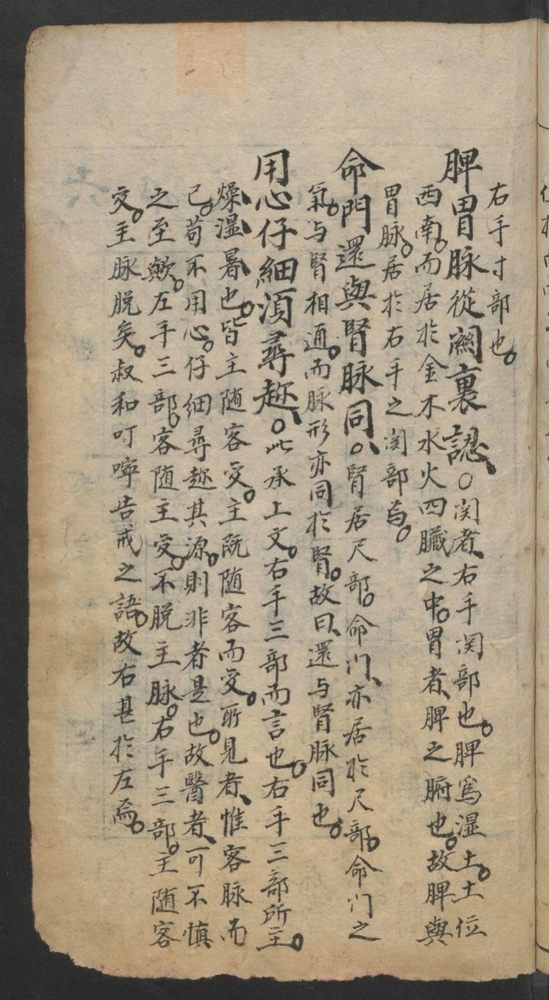 右手寸部也。
脾胃脉從関裏認、〇関者、右手関部也。脾爲湿土。土位
西南。而居扵金木水火四臓之中。胃者、脾之腑也。故脾與
胃脉、居扵右手之関部焉。
命門還與腎脉同。〇腎居尺部。命门、亦居扵尺部。命门之
氣。与腎相通。而脉形亦同扵腎。故曰、還与腎脉同也。
用心仔細湏尋趂、〇此承上文。右手三部而言也。右手三部所主。
燥湿暑也。皆主随客变。主既随客而变。所見者、惟客脉而
已。苟不用心。仔细尋趂其源。則非者是也。故醫者、可不慎
之至歟。左手三部。客随主变。不脱主脉。右手三部。主随客
变。主脉脱矣。叔和叮嚀告戒之語。故右甚扵左焉。